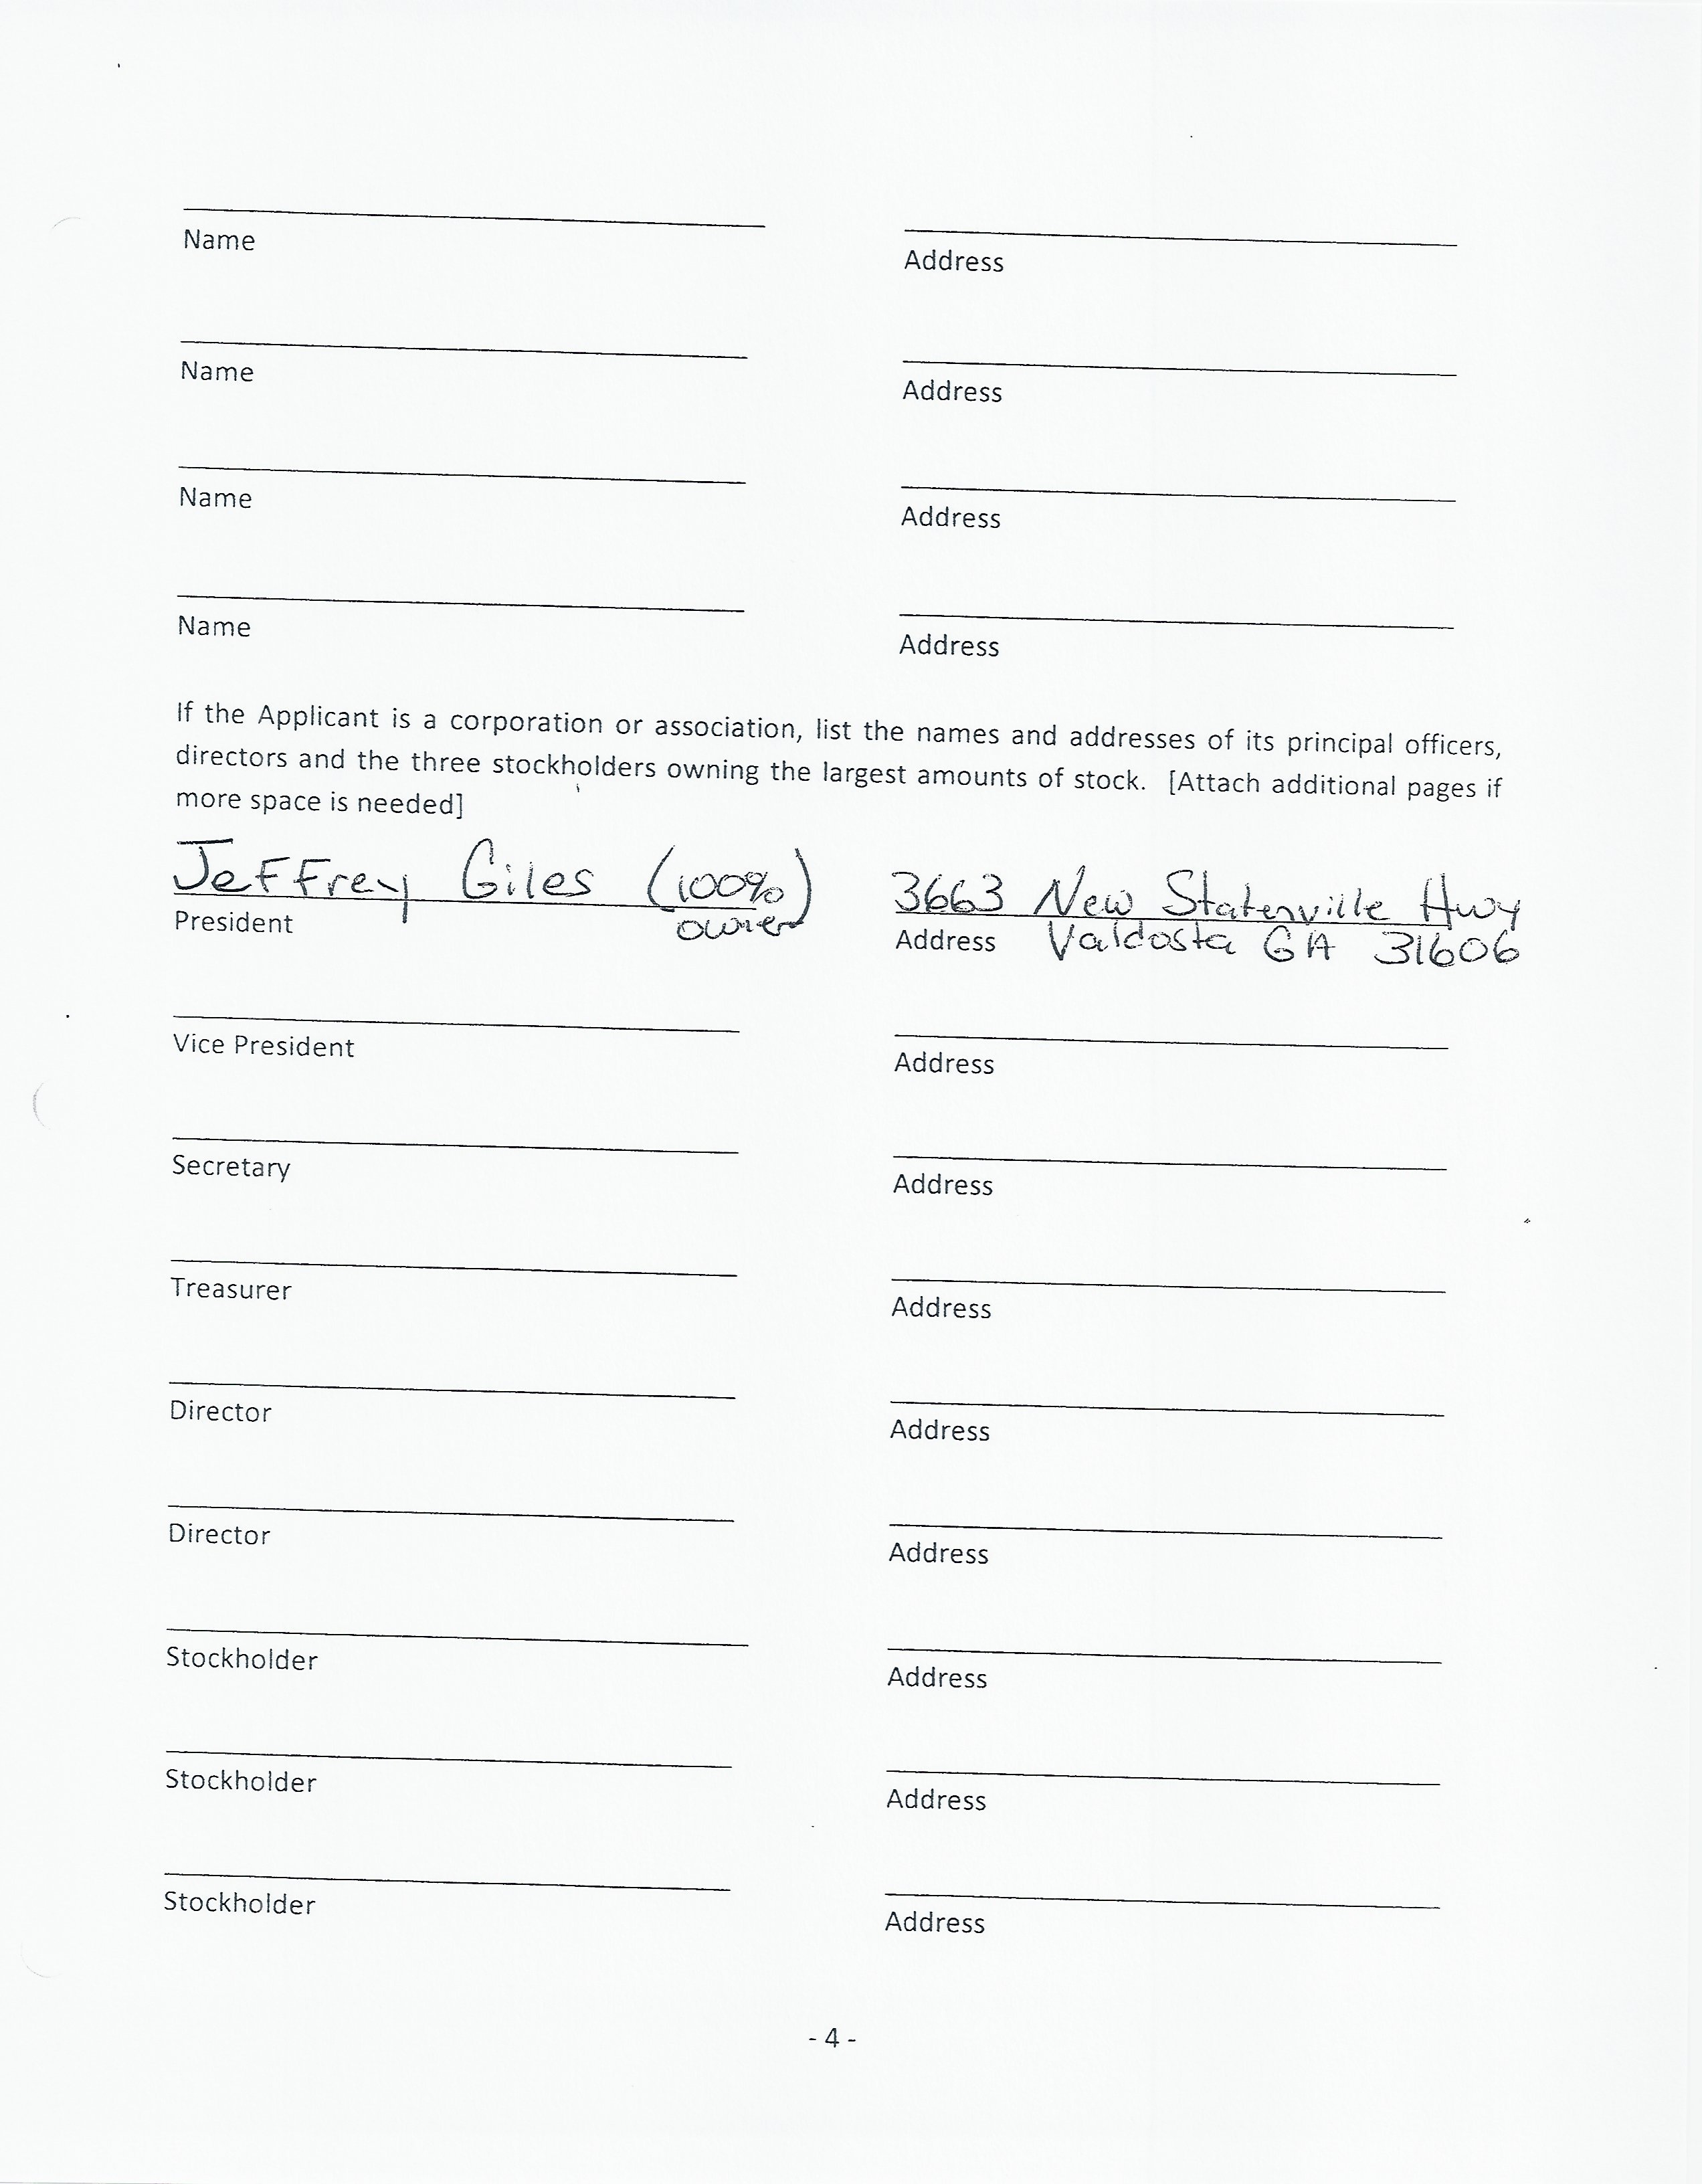 Name Address
Name Address
Name Address
Name Address
If the Applicant is a corporation or association, list the names and addresses of its principal officers,
directors and the three stockholders owning the largest amounts of stock. [Attach additional pages if
more space is needed]
Jeffrey Giles (100%) 3663 New Statenville Hwy
President owner Address Valdosta GA 31606
Vice President Address
Secretary Address
Treasurer Address
Director Address
Director Address
Stockholder Address
Stockholder Address
Stockholder Address
- 4 -